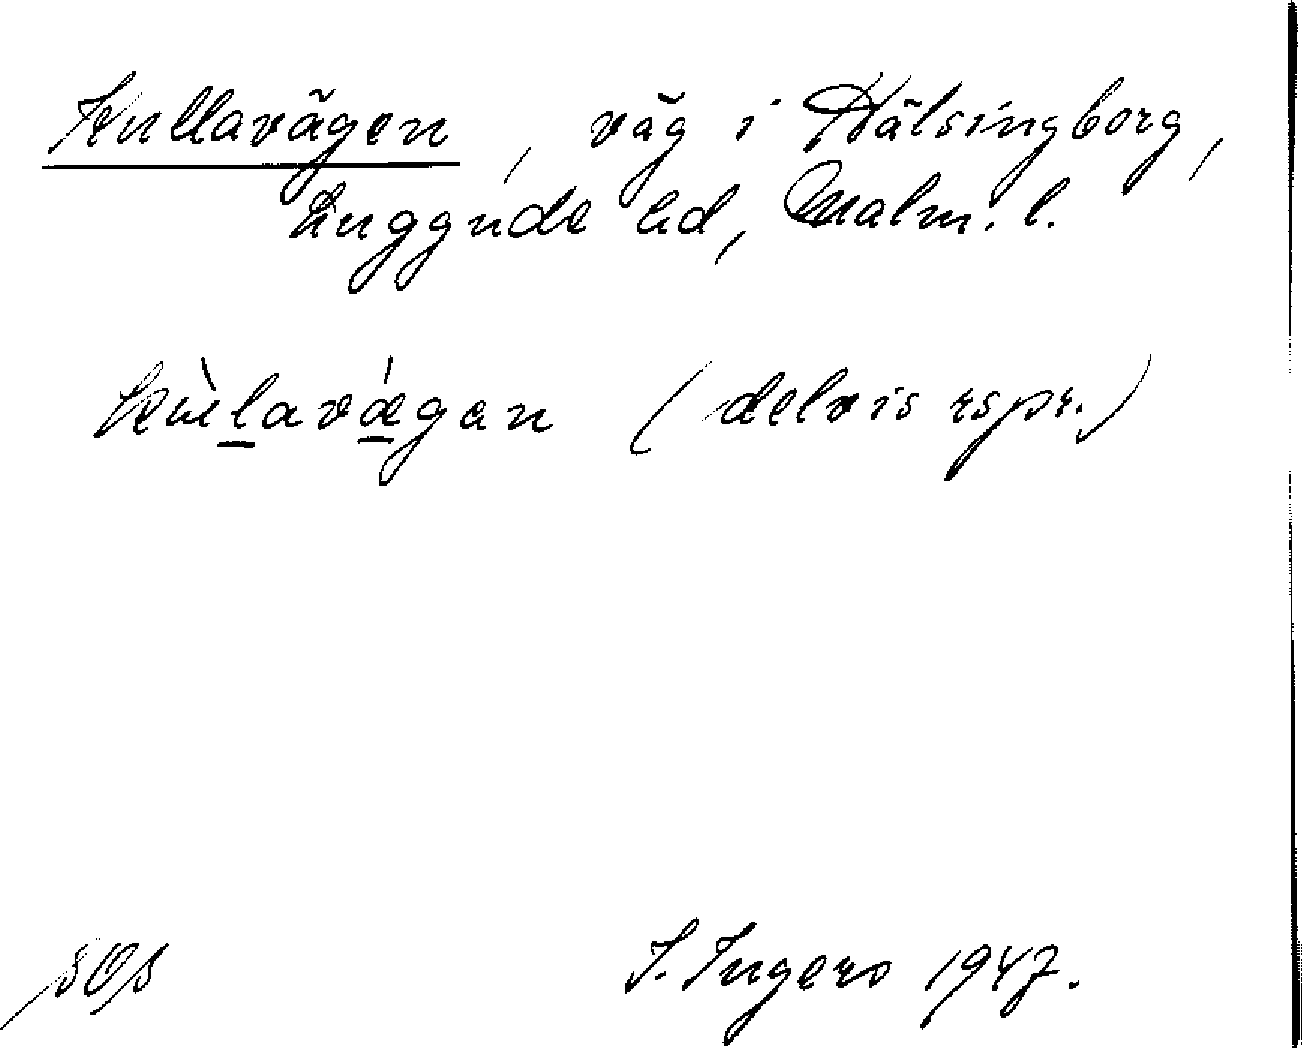 Kullavägen, väg i Hälsingborg,
Luggude hd, Malm. l.
kùlavǽgan (delvis rspr.)
I. Ingers 1947.